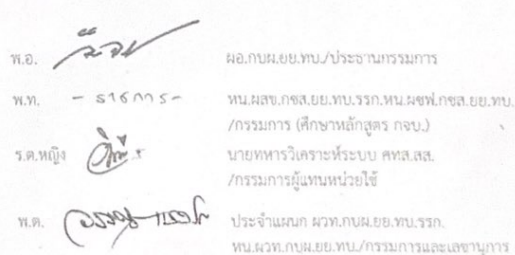 พ.อ. ผอ.กบผ.ยย.ทบ./ประธานกรรมการ
พ.ท. - ราชการ - หน.ผสข.กซส.ยย.ทบ.รรก.หน.ผซฟ.กซส.ยย.ทบ.
/กรรมการ (ศึกษาหลักสูตร กจบ.)
ร.ต.หญิง นายทหารวิเคราะห์ระบบ ศทส.สส.
/กรรมการผู้แทนหน่วยใช้
พ.ต. ประจำแผนก ผวท.กบผ.ยย.ทบ.รรก.
หน.ผวท.กบผ.ยย.ทบ./กรรมการและเลขานุการ